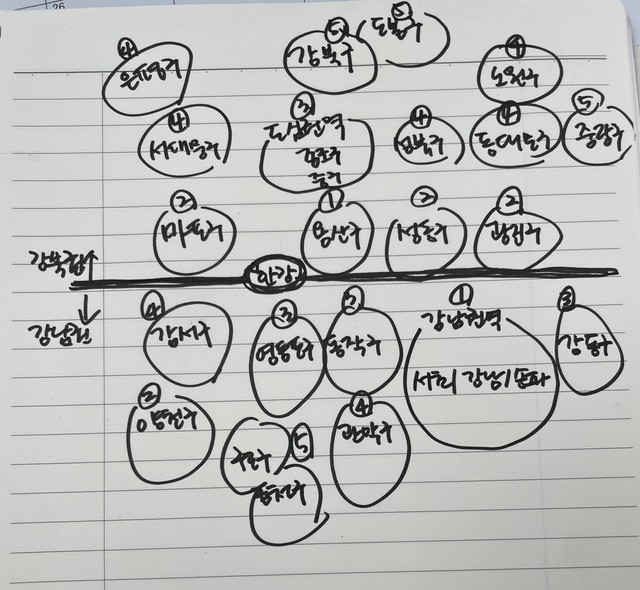 26
④
은평구
⑤
강북구
⑤
도봉구
④
노원구
④
서대문구
③
도심권역
종로구
중구
④
성북구
④
동대문구
⑤
중랑구
②
마포구
①
용산구
②
성동구
②
광진구
강북권↑
한강
↓
강남권
④
강서구
③
영등포구
②
동작구
①
강남권역
서초 강남/송파
③
강동구
②
양천구
구로구
⑤
금천구
④
관악구